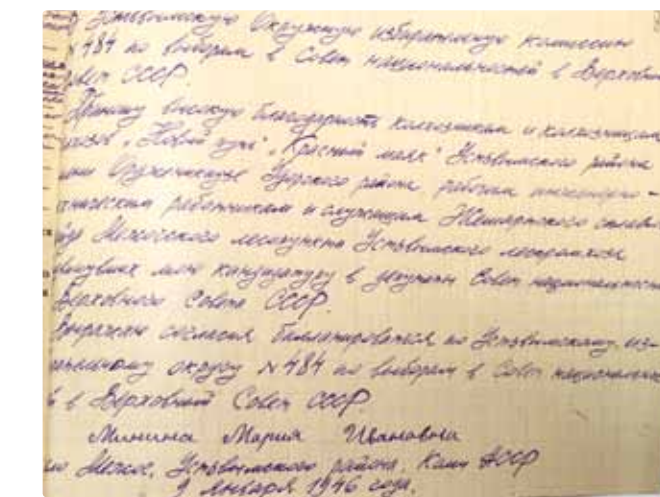 Устьвымскую Окружную избирательную комиссию
№ 484 по выборам в Совет национальностей в Верховный
Совет СССР.
Приношу высокую благодарность колхозникам и колхозницам
колхозов „Новый путь“, „Красный маяк“ Устьвымского района
имени Орджоникидзе Удорского района рабочим инженерно-
техническим работникам и служащим Жешартского
Межогского лесопункта Устьвымского леспромхоза
выдвинувших мою кандидатуру в депутаты Совет национальностей
Верховного Совета СССР.
Выражаю согласия баллотироваться по Устьвымскому из-
бирательному округу № 484 по выборам в Совет национально-
в Верховный Совет СССР.
Минина Мария Ивановна
Межог, Устьвымского района, Коми АССР
9 января 1946 года.